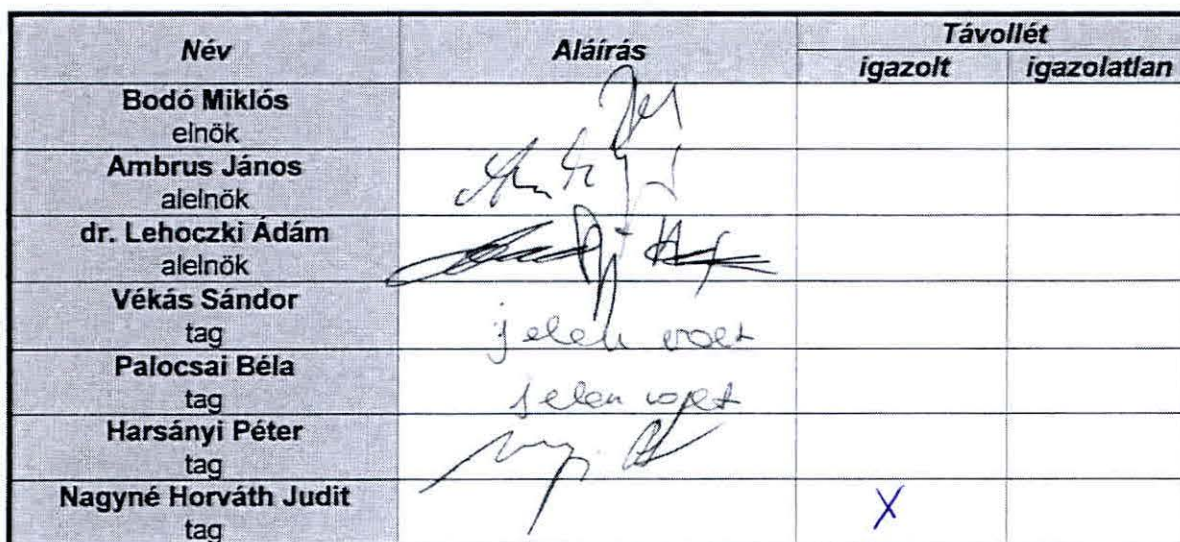 Név Aláírás Távollét
igazolt igazolatlan
Bodó Miklós
elnök
Ambrus János
alelnök
dr. Lehoczki Ádám
alelnök
Vékás Sándor
tag jelen volt
Palocsai Béla
tag jelen volt
Harsányi Péter
tag
Nagyné Horváth Judit
tag X